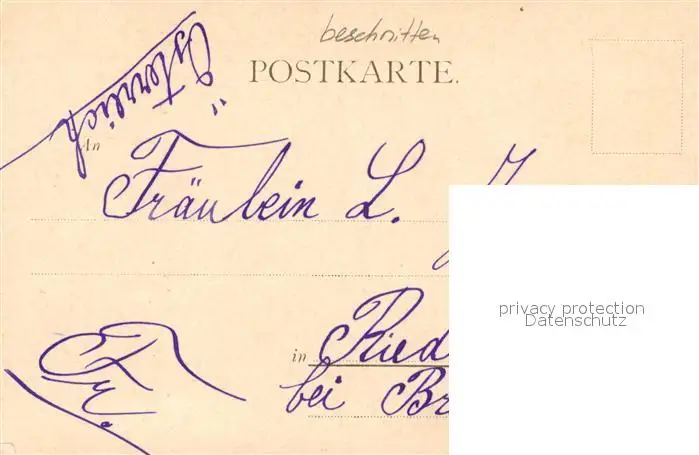 beschnitten
POSTKARTE.
Österreich
An
Fräulein L.
in Ried
bei Br
privacy protection
Datenschutz